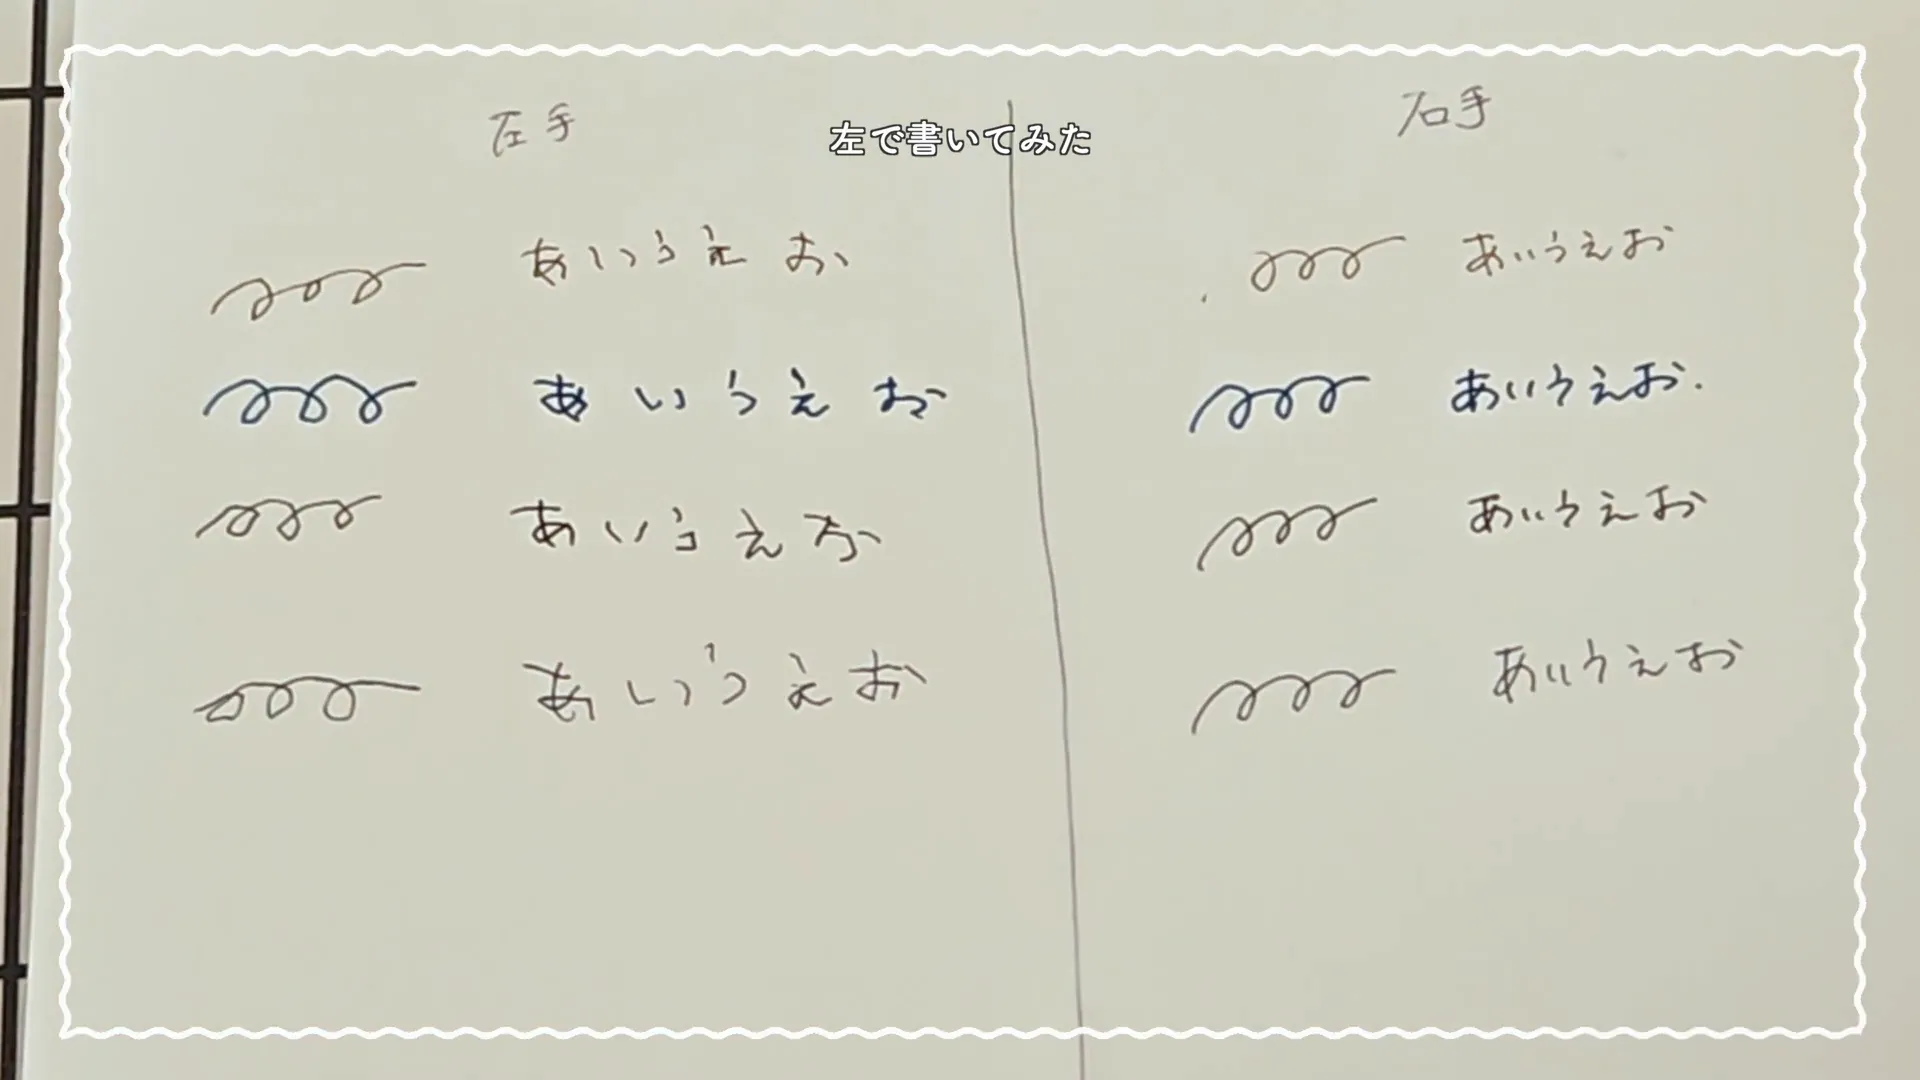 左手
左で書いてみた
右手
あいうえお
あいうえお
あいうえお
あいうえお
あいうえお
あいうえお.
あいうえお
あいうえお